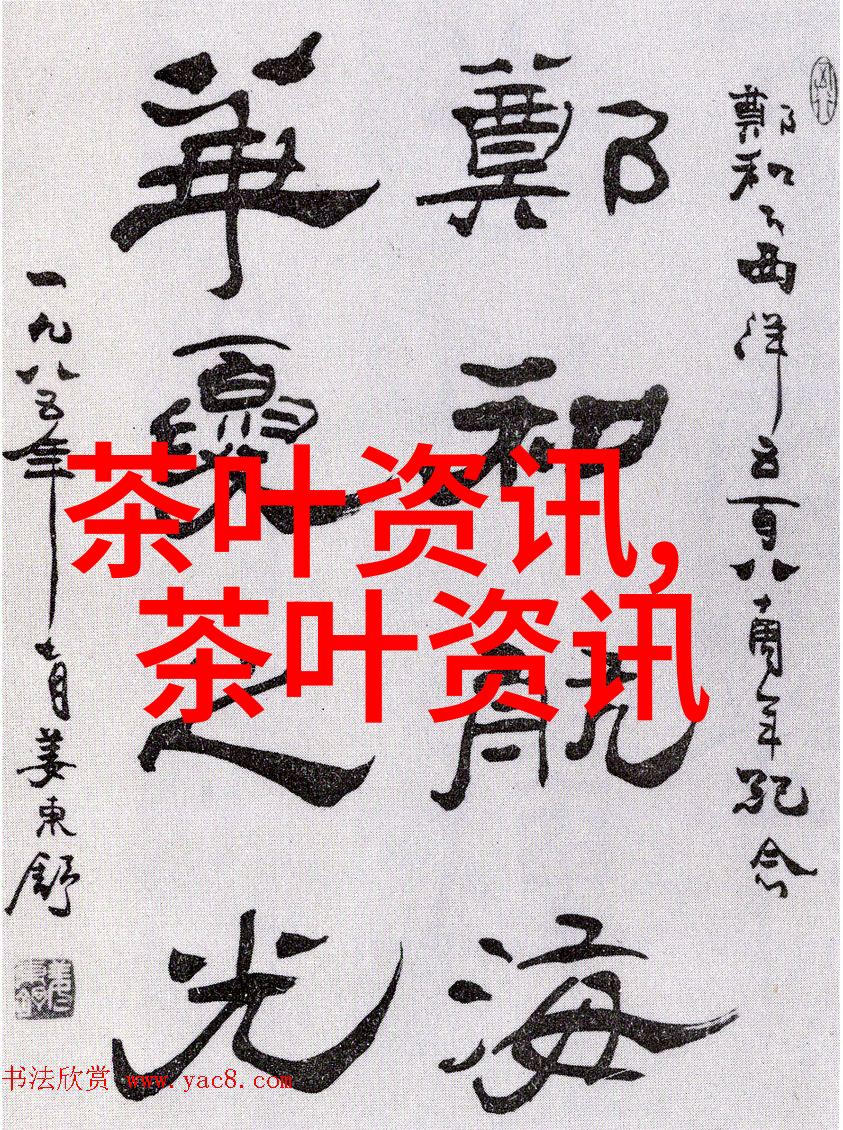 鄭和下西洋五百八十周年紀念
鄭和航海
華夏之光
一九八五年七月姜東舒
茶叶资讯,
茶叶资讯
书法欣赏 www.yac8.com